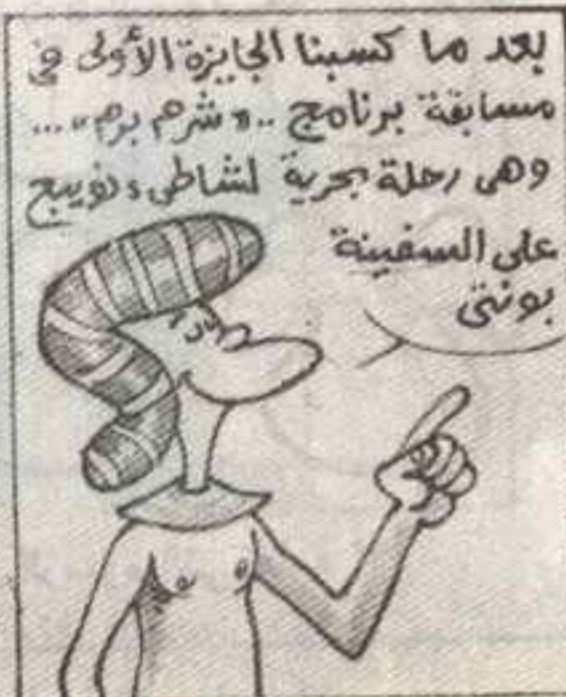 بعد ما كسبنا الجايزة الأولى في
مسابقة برنامج .. «شرم برم» ...
وهى رحلة بحرية لشاطىء نويبع
على السفينة
بونتى